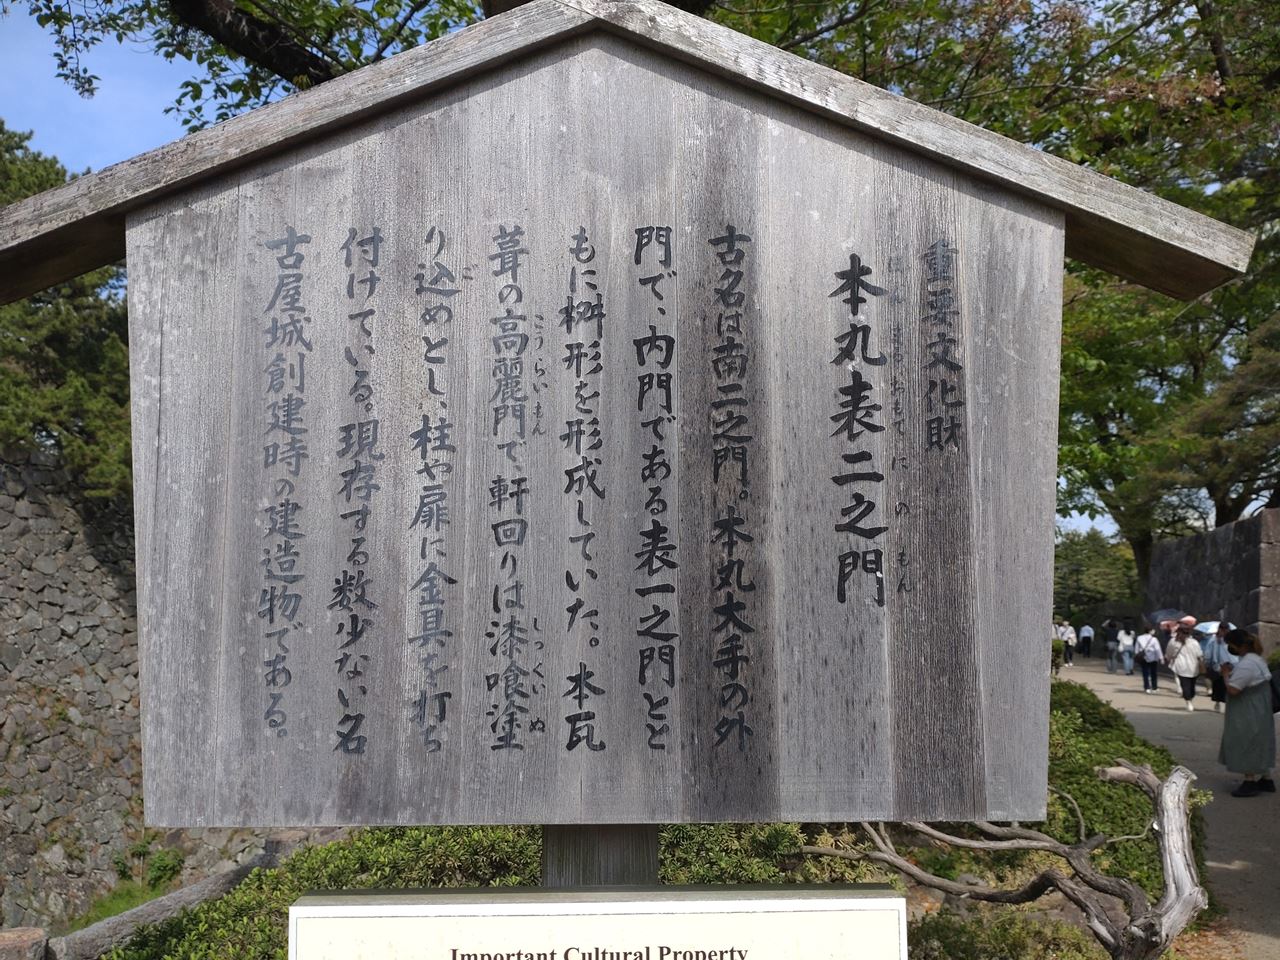 重要文化財
本丸表二之門
ほんまるおもてにのもん
古名は南二之門。本丸大手の外
門で、内門である表一之門とと
もに桝形を形成していた。本瓦
葺の高麗門で、軒回りは漆喰塗
こうらいもん
しっくいぬ
り込めとし、柱や扉に金具を打ち
ご
付けている。現存する数少ない名
古屋城創建時の建造物である。
Important Cultural Property